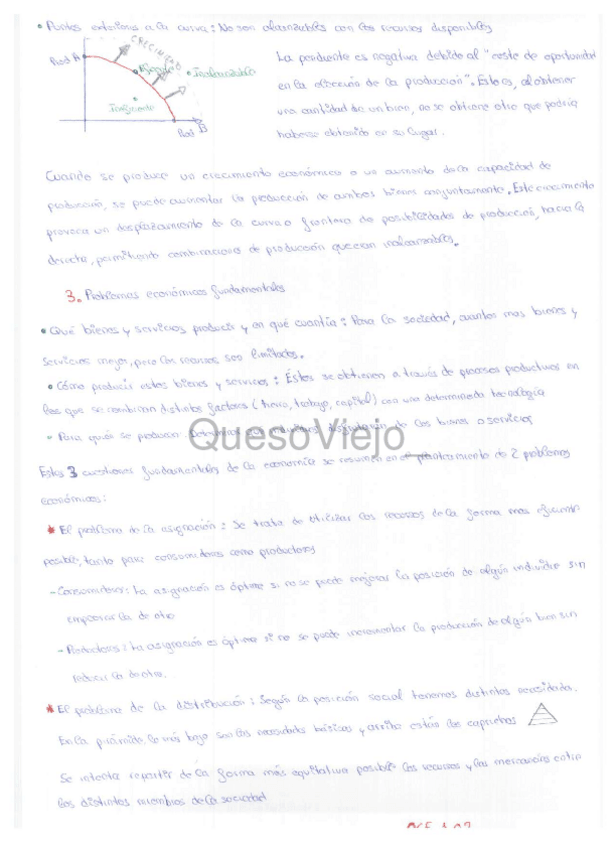 • Puntos exteriores a la curva: No son alcanzables con los recursos disponibles
CRECIMIENTO
Prod A
Inalcanzable
Ineficiente
Prod B
La pendiente es negativa debido al "coste de oportunidad
en la elección de la producción". Esto es, al obtener
una cantidad de un bien, no se obtiene otro que podría
haberse obtenido en su lugar.
Cuando se produce un crecimiento económico o un aumento de la capacidad de
producción, se puede aumentar la producción de ambos bienes conjuntamente. Este crecimiento
provoca un desplazamiento de la curva o frontera de posibilidades de producción, hacia la
derecha, permitiendo combinaciones de producción que eran inalcanzables.
3. Problemas económicos fundamentales
• Qué bienes y servicios producir y en qué cuantía: Para la sociedad, cuantos mas bienes y
servicios mejor, pero los recursos son limitados.
• Cómo producir estos bienes y servicios: Éstos se obtienen a través de procesos productivos en
los que se combinan distintos factores (tierra, trabajo, capital) con una determinada tecnología
- Para quién se producen distribución de los bienes o servicios
QuesoViejo
Estas 3 cuestiones fundamentales de la economía se resumen en el planteamiento de 2 problemas
económicos:
* El problema de la asignación: Se trata de utilizar los recursos de la forma mas eficiente
posible, tanto para consumidores como productores
- Consumidores: La asignación es óptima si no se puede mejorar la posición de algún individuo sin
empeorar la de otro
- Productores: La asignación es óptima si no se puede incrementar la producción de algún bien sin
reducir la de otro.
* El problema de la distribución: Según la posición social tenemos distintas necesidades.
En la pirámide, lo más bajo son las necesidades básicas y arriba están los caprichos
Se intenta repartir de la forma más equitativa posible los recursos y las mercancías entre
los distintos miembros de la sociedad